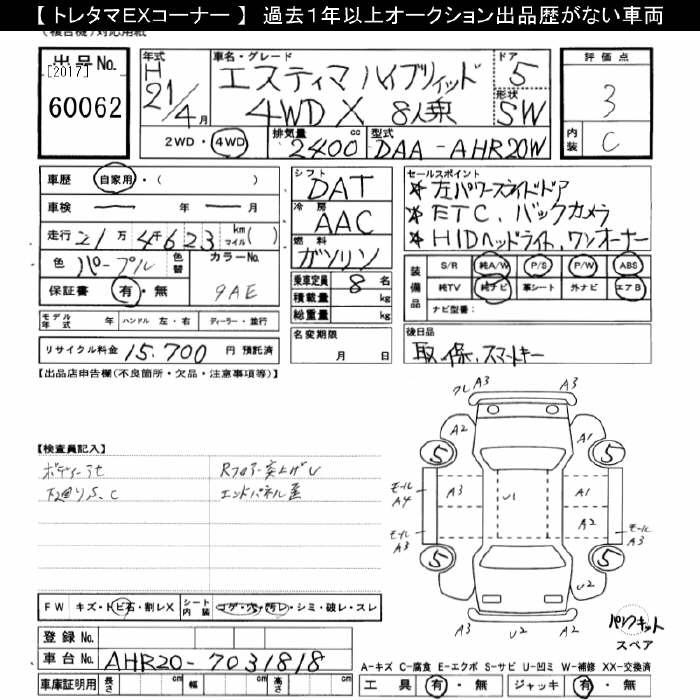 【トレタマＥＸコーナー】 過去１年以上オークション出品歴がない車両
（複合機）対応用紙
出品No. [2017] 60062
年式 H 21/4月
車名・グレード エスティマ ハイブリッド 4WD X 8人乗
ドア 5
形状 SW
評価点 3
内装 C
2WD・4WD
排気量 2400 cc
型式 DAA-AHR20W
車歴 自家用・( )
車検 ー 年 ー 月
走行 21万4千623 km マイル( )
色 パープル 色替 カラーNo. 9AE
保証書 有・無
モデル年式 年 ハンドル 左・右 ディーラー・並行
リサイクル料金 15,700 円 預託済
シフト DAT
冷房 AAC
燃料 ガソリン
乗車定員 8 名
積載量 kg
総重量 kg
名変期限 月 日
セールスポイント
＊左パワースライドドア
＊ETC、バックカメラ
＊HIDヘッドライト、ワンオーナー
装備品 S/R 純A/W P/S P/W ABS
純TV 純ナビ 革シート 外ナビ エアB
ナビ型番:
後日品
取、保、スマートキー
【出品店申告欄(不良箇所・欠品・注意事項等)】
【検査員記入】
下廻りS、C
Rフロアー突上げU
エンドパネル歪
A3 A3
A2 A1
5 5
モール A4 A3 U1 A1
A2
モール A3 モール A3
5 5
U2
A3 U2 A2
パンクキット
スペア
FW キズ・トビ石・割レX シート内装 コゲ・穴・汚レ・シミ・破レ・スレ
登録No.
車台No. AHR20-7031818
車庫証明用 長さ cm 幅 cm 高さ cm
A-キズ C-腐食 E-エクボ S-サビ U-凹ミ W-補修 XX-交換済
工具 有・無 ジャッキ 有・無